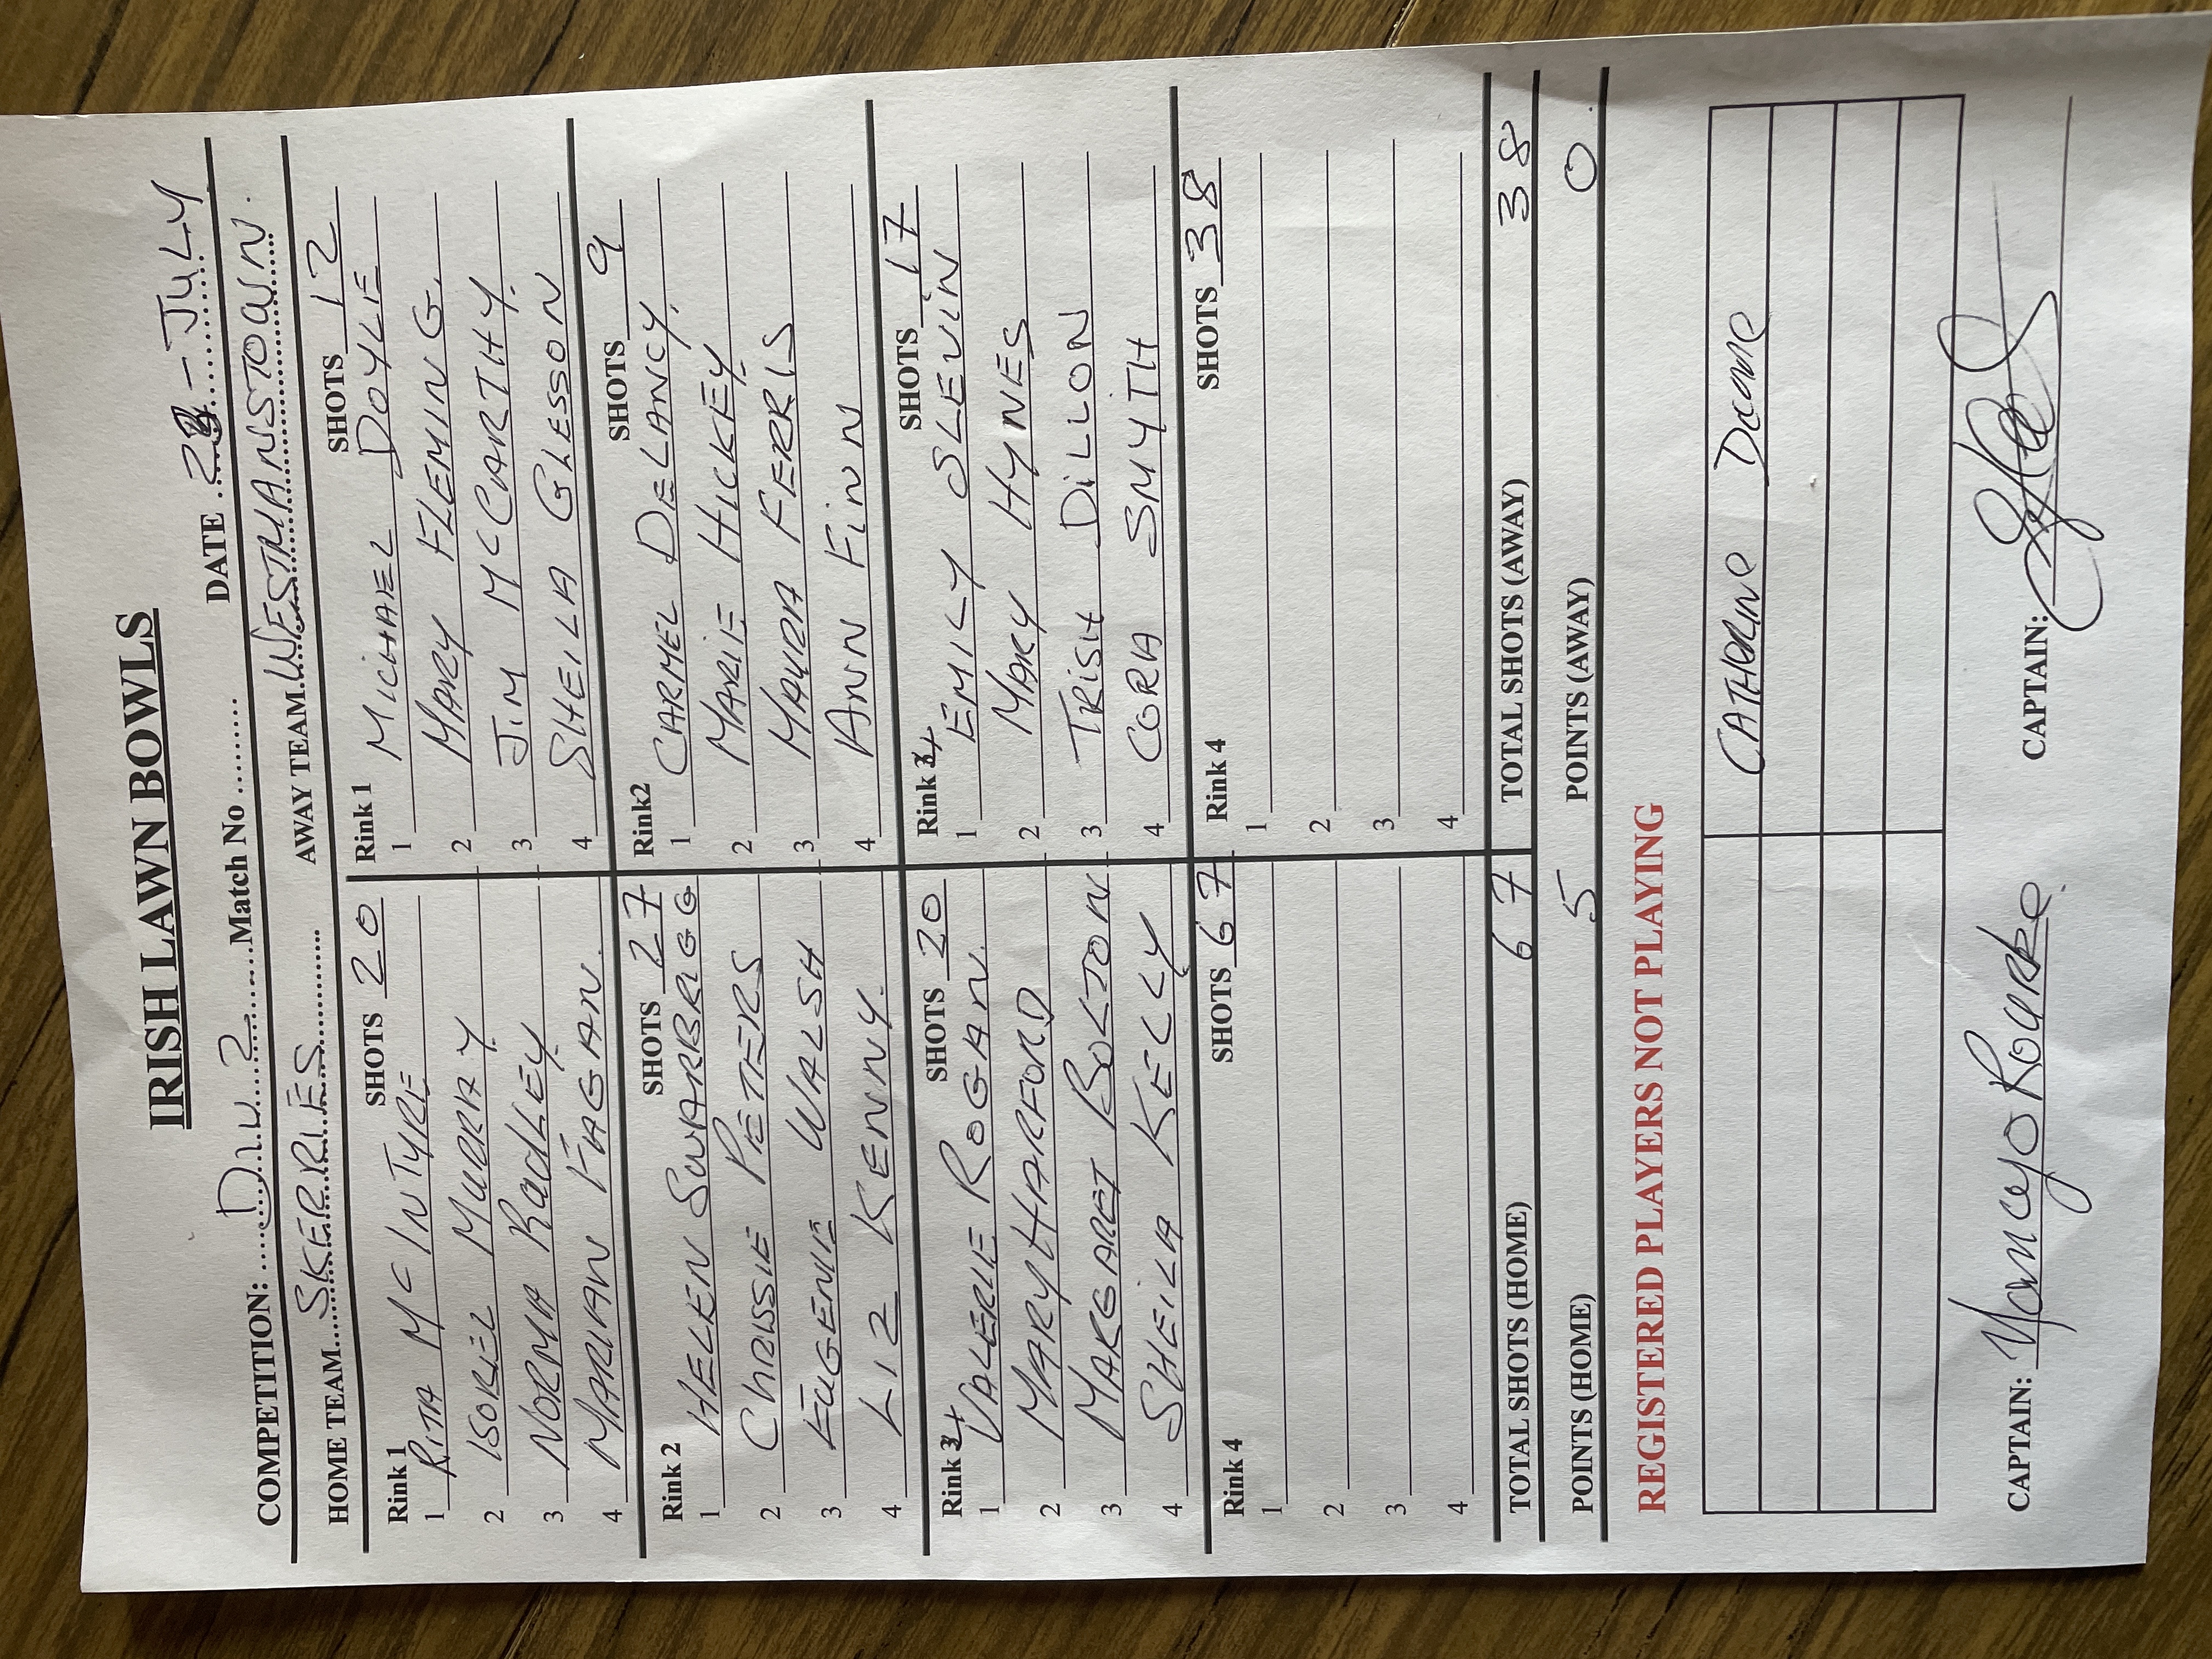 IRISH LAWN BOWLS
COMPETITION: DIV 2 Match No DATE - JULY
HOME TEAM SKERRIES AWAY TEAM WESTMANSTOWN.
Rink 1 SHOTS 20 Rink 1 SHOTS 12
1 RITA Mc INTYRE 1 MICHAEL DOYLE
2 ISOBEL MURRAY 2 MARY FLEMING.
3 NORMA RADLEY 3 JIM McCARTHY.
4 MARIAN FAGAN. 4 SHEILA GLESSON
Rink 2 SHOTS 27 Rink2 SHOTS 9
1 HELEN SWARBRIGG 1 CARMEL DELANCY.
2 CHRISSIE PETERS 2 MARIE HICKEY.
3 EUGENIE WALSH 3 MAURA FERRIS
4 LIZ KENNY. 4 ANN FINN
Rink SHOTS 20 Rink SHOTS 17
1 VALERIE ROGAN. 1 EMILY SLEVIN
2 MARY HARFORD 2 MARY HYNES
3 MARGARET BOLTON 3 TRISH DILLON
4 SHEILA KELLY 4 CORA SMYTH
Rink 4 SHOTS 67 Rink 4 SHOTS 38
1 1
2 2
3 3
4 4
TOTAL SHOTS (HOME) 67 TOTAL SHOTS (AWAY) 38
POINTS (HOME) 5 POINTS (AWAY) 0
REGISTERED PLAYERS NOT PLAYING
CATHERINE
CAPTAIN: Nancy O Rourke. CAPTAIN: